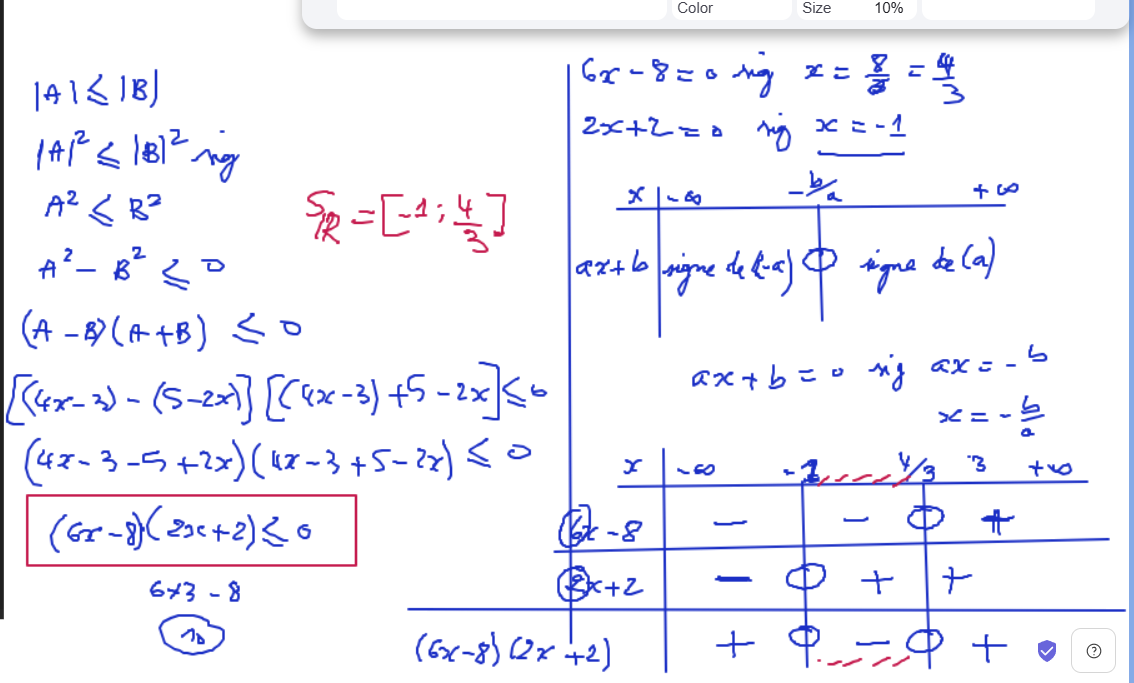 Color Size 10%
|A| ⩽ |B|
|A|² ⩽ |B|² sig
A² ⩽ B²
A² - B² ⩽ 0
(A - B)(A + B) ⩽ 0
[(4x-3) - (5-2x)] [(4x-3) + 5 - 2x] ⩽ 0
(4x - 3 - 5 + 2x)(4x - 3 + 5 - 2x) ⩽ 0
(6x - 8)(2x + 2) ⩽ 0
6×3 - 8
10
S_ℝ = [-1 ; 4/3]
6x - 8 = 0 sig x = 8/6 = 4/3
2x + 2 = 0 sig x = -1
x -∞ -b/a +∞
ax + b signe de (-a) 0 signe de (a)
ax + b = 0 sig ax = -b
x = -b/a
x -∞ -1 4/3 3 +∞
6x - 8 - - 0 +
2x + 2 - 0 + +
(6x-8)(2x+2) + 0 - 0 +